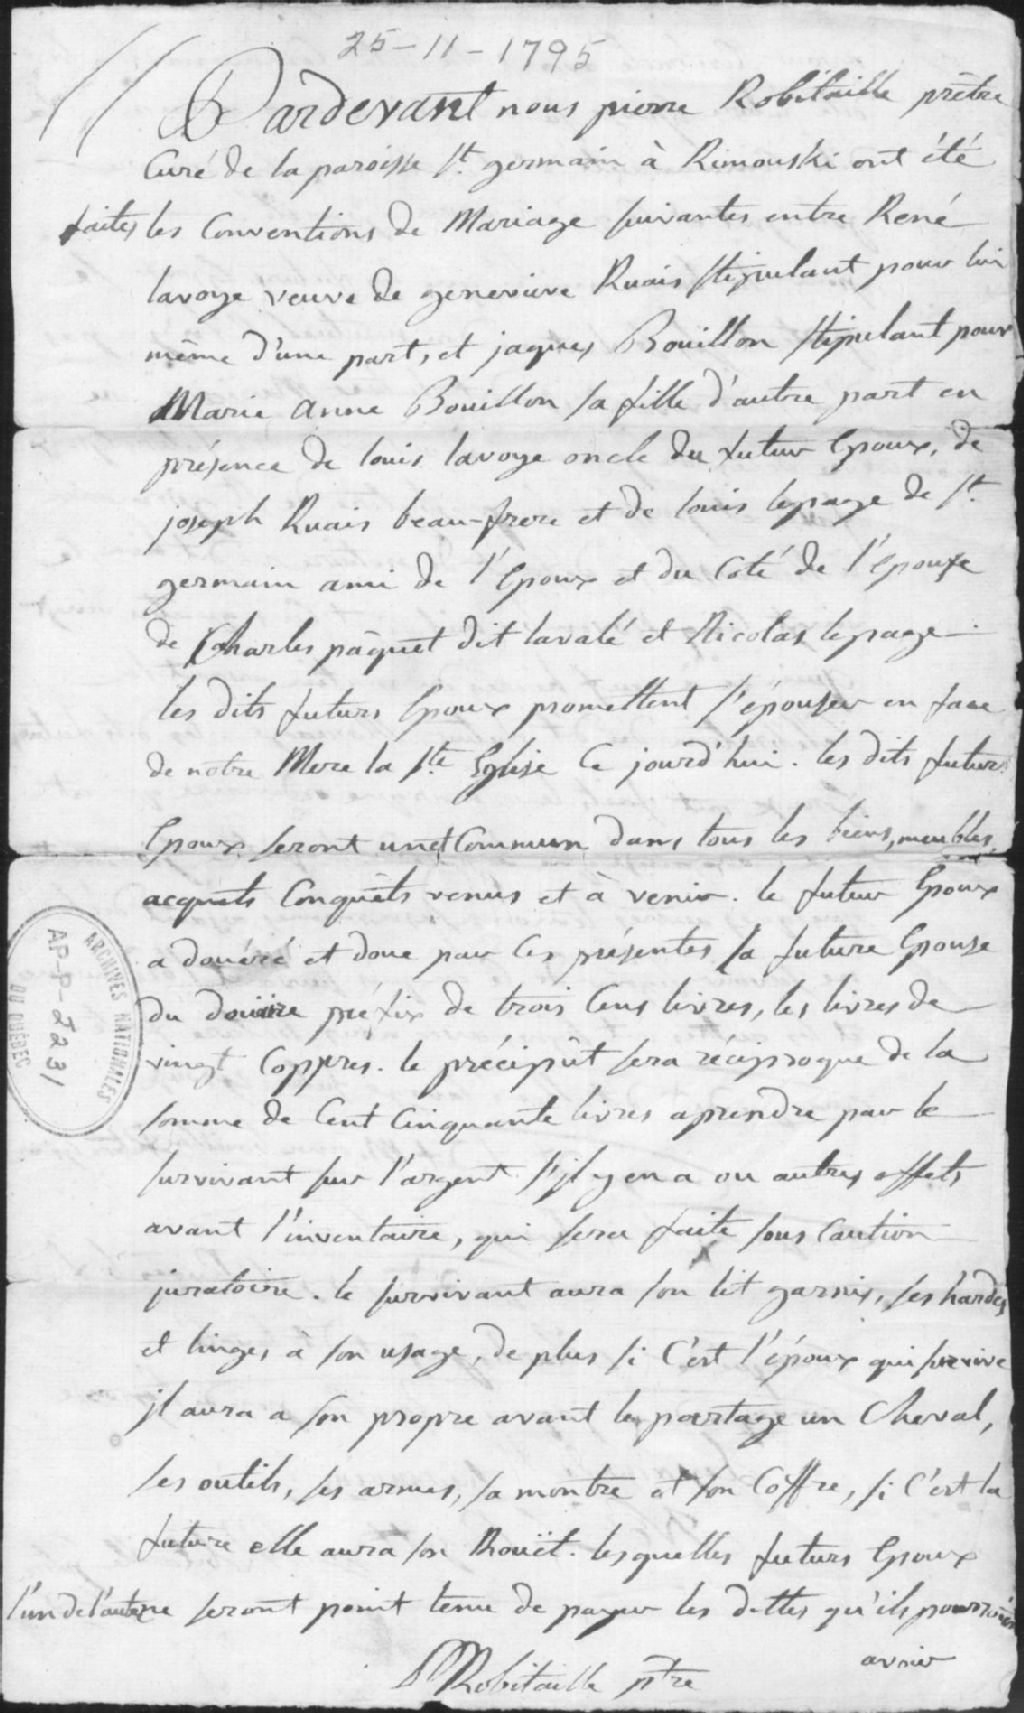 25-11-1795
Pardevant nous pierre Robitaille prêtre
Curé de la paroisse St. germain à Rimouski ont été
faites les Conventions de Mariage suivantes entre René
lavoye veuve de genevieve Ruais stipulant pour lui
même d'une part, et jaques Bouillon stipulant pour
Marie Anne Bouillon sa fille d'autre part en
présence de louis lavoye oncle du futur Epoux, de
joseph Ruais beau-frere et de louis lepage de St.
germain ami de l'Epoux et du Coté de l'Epouse
de Charles pâquet dit lavalé et Nicolas lepage
les dits futurs Epoux promettent s'épouser en face
de notre Mere la Ste Eglise Ce jourd'hui. les dits futurs
Epoux seront un et Commun dans tous les biens, meubles,
acquêts Conquêts venus et à venir. le futur Epoux
a douéré et doue par Ces présentes la future Epouse
du douaire préfix de trois Cens livres, les livres de
vingt Coppres. le précipût sera réciproque de la
somme de Cent Cinquante livres aprendre par le
survivant sur l'argent s'jl y en a ou autres effets
avant l'inventaire, qui sera faite sous Caution
juratoire. le survivant aura son lit garnis, ses hardes
et linges à son usage, de plus si C'est l'époux qui survive
jl aura a son propre avant le partage un Cheval,
ses outils, ses armes, sa montre et son Coffre, si C'est la
future elle aura son Rouët. lesquelles futurs Epoux
l'un de l'autre ne seront point tenu de payer les dettes qu'ils pourroient
avoir
P Robitaille ptre
ARCHIVES NATIONALES
DU QUÉBEC
AP-P-2231